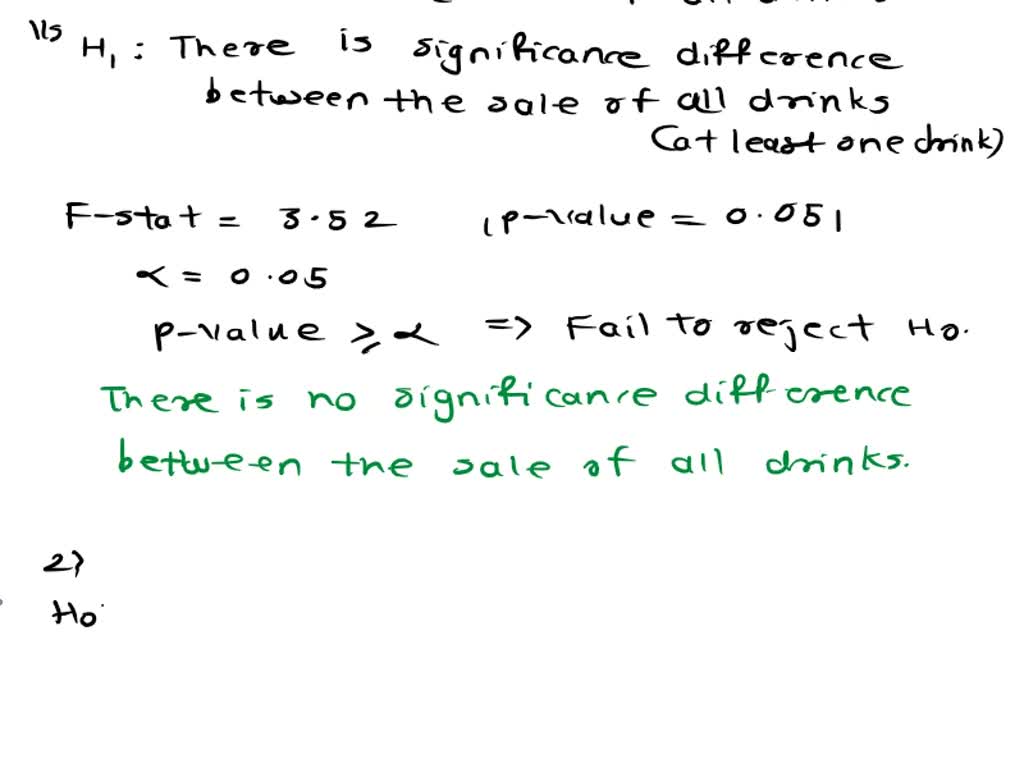 V/s
H₁ : There is significance difference
between the sale of all drinks
(at least one drink)
F-stat = 3.52 , p-value = 0.051
α = 0.05
p-value ⩾ α => Fail to reject Ho.
There is no significance difference
between the sale of all drinks.
2)
Ho